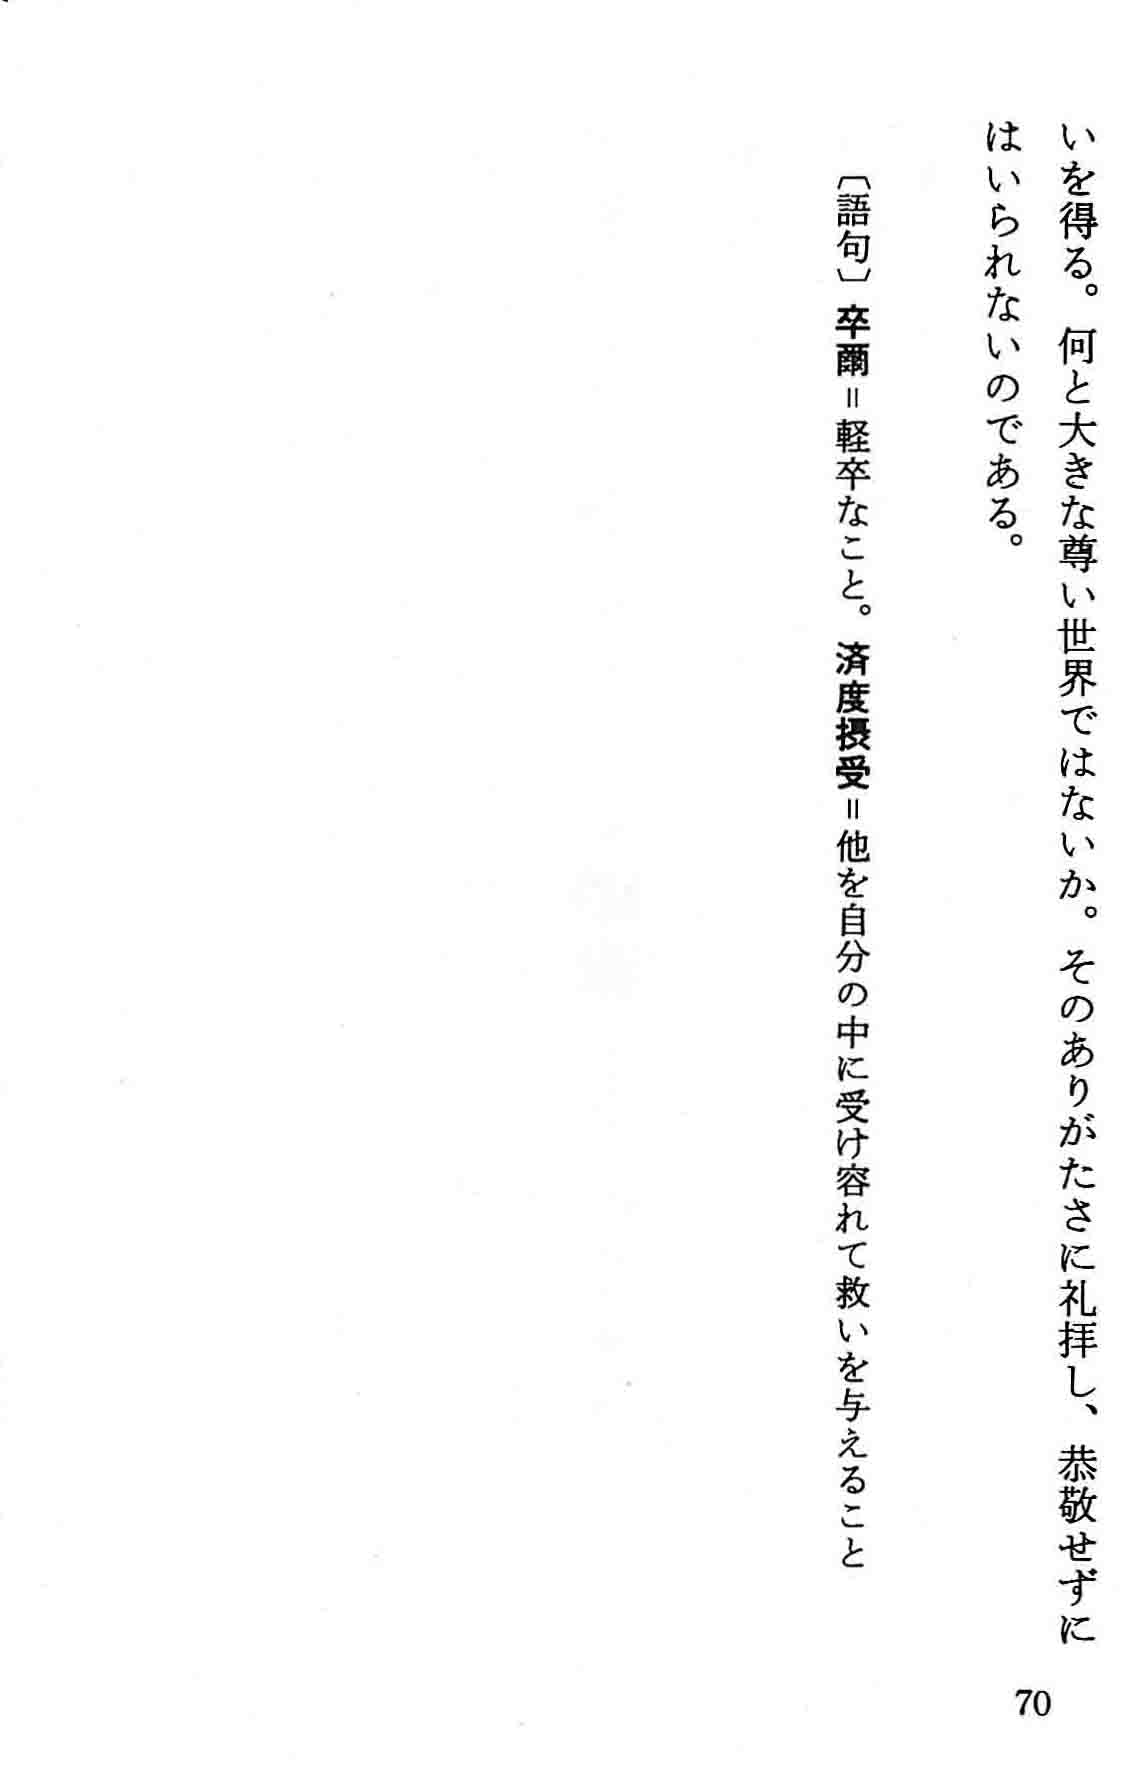 いを得る。何と大きな尊い世界ではないか。そのありがたさに礼拝し、恭敬せずに
はいられないのである。
〔語句〕卒爾＝軽卒なこと。済度摂受＝他を自分の中に受け容れて救いを与えること
70